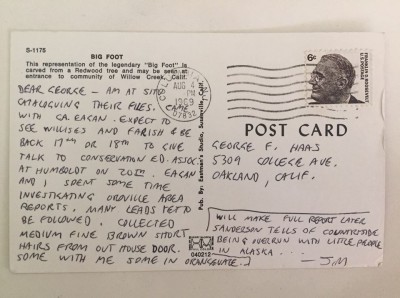 S-1175
BIG FOOT
This representation of the legendary "Big Foot" is
carved from a Redwood tree and may be seen at
entrance to community of Willow Creek, Calif.
DEAR GEORGE - AM AT SITE
CATALOGUING THEIR FILES. CAME
WITH CA. EAGAN. EXPECT TO
SEE WILLISES AND FARISH & BE
BACK 17TH OR 18TH TO GIVE
TALK TO CONSERVATION ED. ASSOC.
AT HUMBOLDT ON 20TH. EAGAN
AND I SPENT SOME TIME
INVESTIGATING OROVILLE AREA
REPORTS. MANY LEADS YET TO
BE FOLLOWED. COLLECTED
MEDIUM FINE BROWN SHORT
HAIRS FROM OUT HOUSE DOOR.
SOME WITH ME SOME IN ORANGEVALE.
Pub. By: Eastman's Studio, Susanville, Calif.
AUG 4
PM
1969
6¢
FRANKLIN D. ROOSEVELT
U.S. POSTAGE
POST CARD
GEORGE F. HAAS
5309 COLLEGE AVE.
OAKLAND, CALIF.
WILL MAKE FULL REPORT LATER
SANDERSON TELLS OF COUNTRYSIDE
BEING OVERRUN WITH LITTLE PEOPLE
IN ALASKA...
- JIM
040212